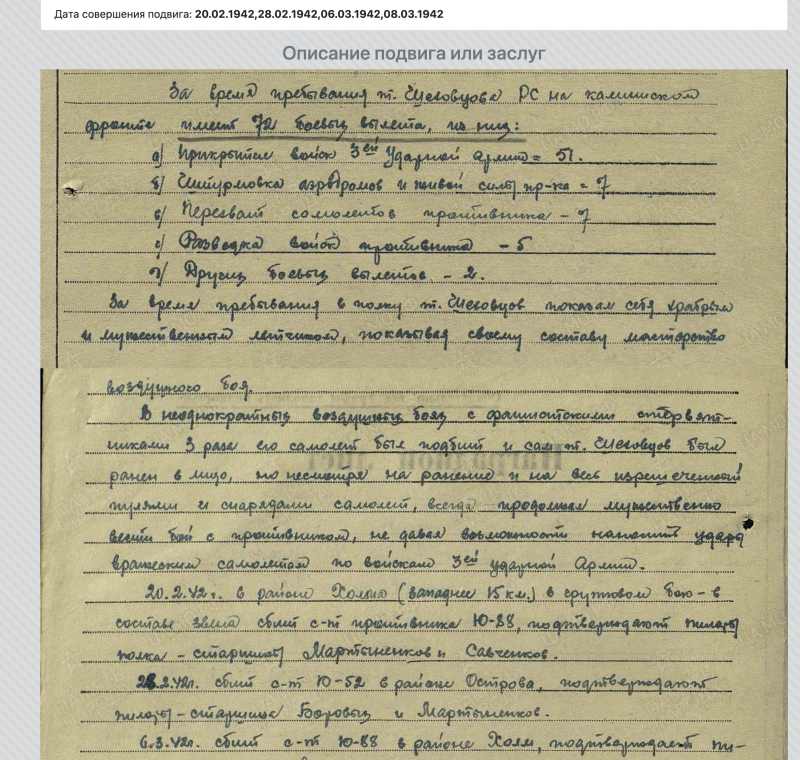 Дата совершения подвига: 20.02.1942,28.02.1942,06.03.1942,08.03.1942
Описание подвига или заслуг
За время пребывания т. Шевовцова РС на калининском
фронте имеет 72 боевых вылета, из них:
а/ Прикрытие войск 3ей Ударной Армии = 51.
б/ Штурмовка аэродромов и живой силы пр-ка = 7
в/ Перехват самолетов противника - 7
г/ Разведка войск противника - 5
д/ Других боевых вылетов - 2.
За время пребывания в полку т. Шевовцов показал себя храбрым
и мужественным летчиком, показывая своему составу мастерство
воздушного боя.
В неоднократных воздушных боях с фашистскими стервят-
никами 3 раза его самолет был подбит и сам т. Шевовцов был
ранен в лицо, но несмотря на ранение и на весь изрешеченный
пулями и снарядами самолет, всегда продолжал мужественно
вести бой с противником, не давая возможности наносить удары
вражеским самолетам по войскам 3ей ударной Армии.
20.2.42г. в районе Холма (западнее 15 км.) в групповом бою - в
составе звена сбит с-т противника Ю-88, подтверждают пилоты
полка - старшины Мартыненков и Савченков.
28.2.42г. сбит с-т Ю-52 в районе Острова, подтверждают
пилоты - старшина Боровых и Мартыненков.
6.3.42г. сбит с-т Ю-88 в районе Холм, подтверждает пи-